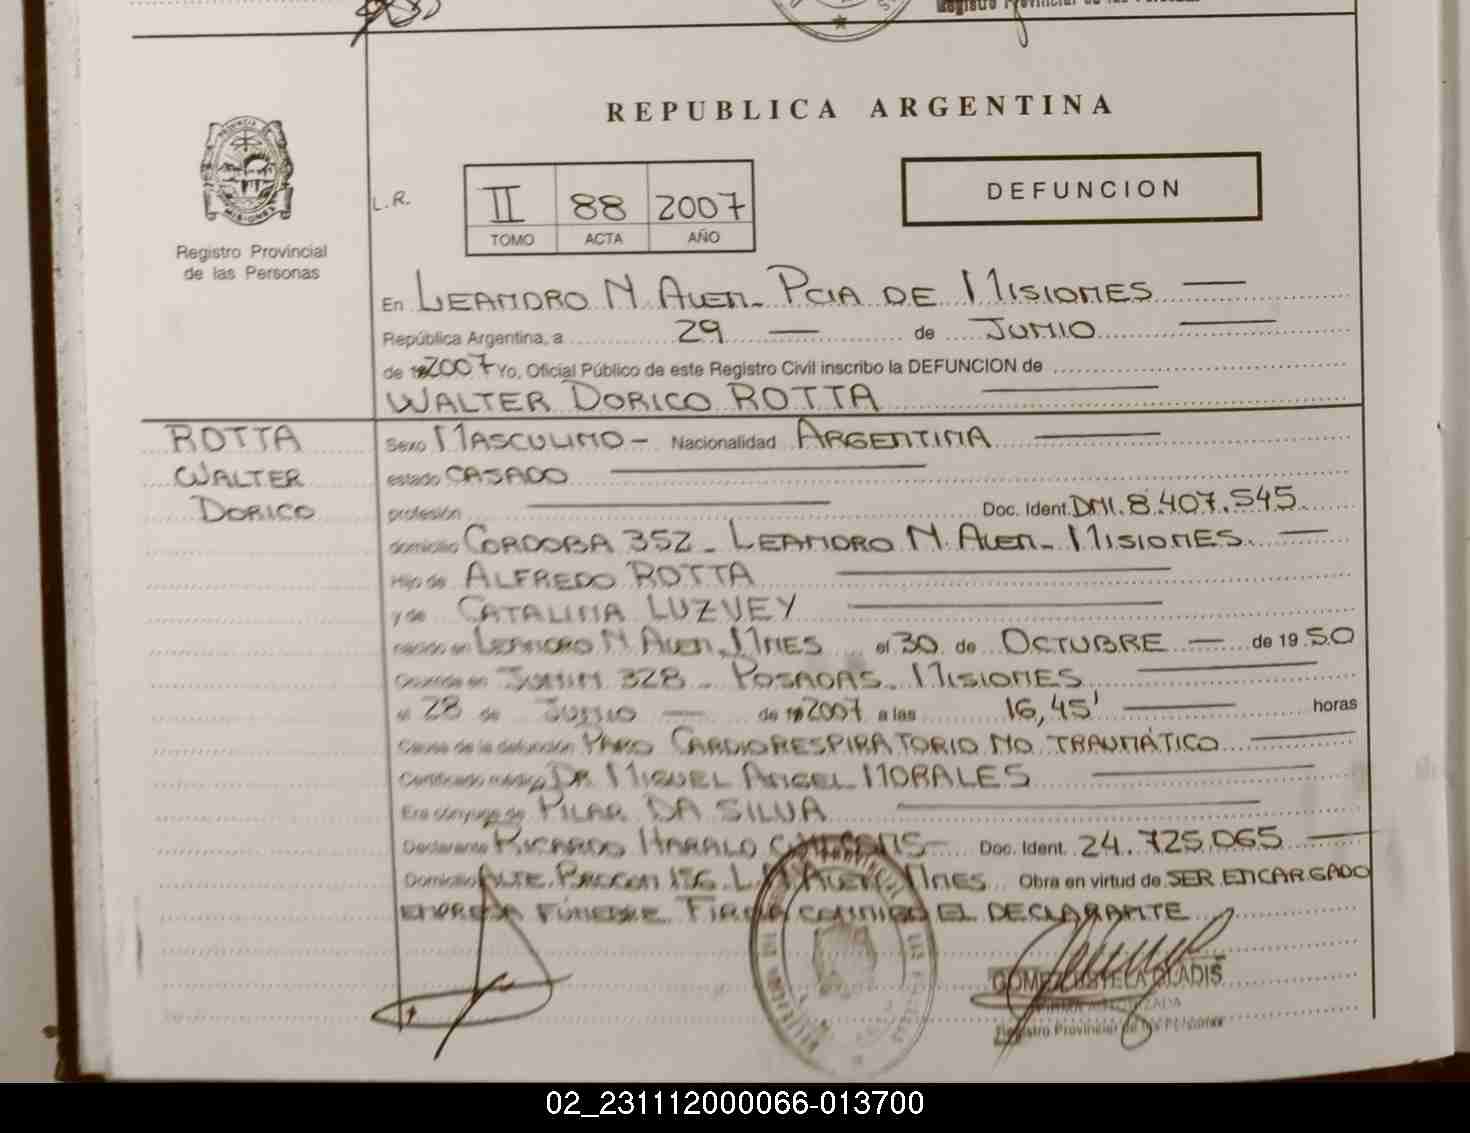 REPUBLICA ARGENTINA
L.R.
II 88 2007
TOMO ACTA AÑO
DEFUNCION
PROVINCIA DE
MISIONES
Registro Provincial
de las Personas
En LEANDRO N. ALEM - PCIA DE MISIONES
República Argentina, a 29 de JUNIO
de 2007 Yo, Oficial Público de este Registro Civil inscribo la DEFUNCION de
WALTER DORICO ROTTA
ROTTA
WALTER
DORICO
Sexo MASCULINO - Nacionalidad ARGENTINA
estado CASADO
profesión Doc. Ident. DNI. 8.407.545
domicilio CORDOBA 352 - LEANDRO N. ALEM - MISIONES
Hijo de ALFREDO ROTTA
y de CATALINA LUZVEY
nacido en LEANDRO N. ALEM, MNES el 30 de OCTUBRE de 1950
Ocurrida en JUNIN 328 - POSADAS - MISIONES
el 28 de JUNIO de 2007 a las 16,45' horas
Causa de la defunción PARO CARDIORESPIRATORIO NO TRAUMÁTICO
Certificado médico DR MIGUEL ANGEL MORALES
Era cónyuge de PILAR DA SILVA
Declarante RICARDO HARALO Doc. Ident. 24.725.065
Domicilio ALTE. BROWN 156. L.N ALEM, MNES Obra en virtud de SER ENCARGADO
EMPRESA FÚNEBRE. FIRMA CONMIGO EL DECLARANTE
GOMEZ GLADIS
FIRMA AUTORIZADA
Registro Provincial de las Personas
02_231112000066-013700